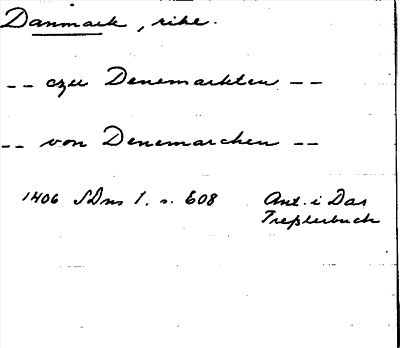 Danmark, rike.
-- czu Denemarkten --
-- von Denemarchen --
1406 SDns 1. s. 608 Ant. i Das
Treßlerbuch